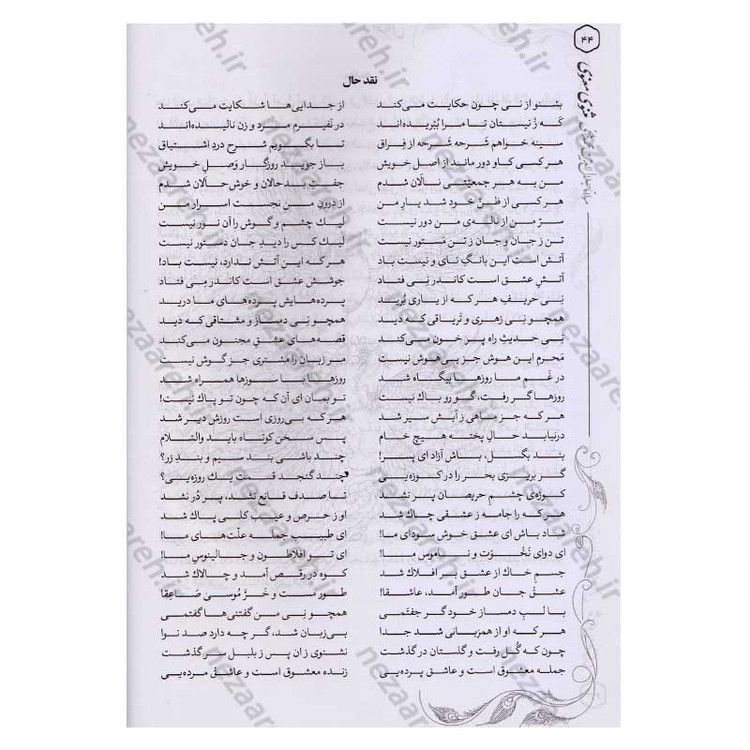 ۴۴
مثنوی معنوی
نقد حال
بشنو از نی چون حکایت می‌کند از جدایی‌ها شکایت می‌کند
کَه زْ نیستان تا مرا بُبریده‌اند در نَفیرم مرد و زن نالیده‌اند
سینه خواهم شَرحه شَرحه از فِراق تا بگویم شرح دردِ اشتیاق
هر کسی کاو دور ماند از اصل خویش باز جوید روزگار وَصلِ خویش
من به هر جمعیّتی نالان شدم جفتِ بد حالان و خوش حالان شدم
هر کسی از ظنِّ خود شد یارِ من از درونِ من نجست اسرار من
سرّ من از ناله‌ی من دور نیست لیك چشم و گوش را آن نور نیست
تن ز جان و جان ز تن مَستور نیست لیك کس را دیدِ جان دستور نیست
آتش است این بانگِ نای و نیست باد هر که این آتش ندارد، نیست باد!
آتشِ عشق است کاندر نِی فتاد جوشش عشق است کاندر مِی فتاد
نِی حریفِ هر که از یاری بُرید پرده‌هایش پرده‌های ما درید
همچو نِی زهری و تَریاقی که دید همچو نِی دمساز و مشتاقی که دید
نِی حدیثِ راه پر خون می‌کند قصه‌های عشقِ مجنون می‌کند
مَحرم این هوش جز بی‌هوش نیست مر زبان را مشتری جز گوش نیست
در غَمِ ما روزها بیگاه شد روزها با سوزها همراه شد
روزها گر رفت، گو رو باك نیست تو بمان ای آن که چون تو پاك نیست!
هر که جز ماهی ز آبش سیر شد هر که بی‌روزی است روزش دیر شد
درنیابد حالِ پخته هیچ خام پس سخن کوتاه باید والسّلام
بند بگسل، باش آزاد ای پسر! چند باشی بندِ سیم و بندِ زر؟
گر بریزی بحر را در کوزه‌یی چند گنجد قسمت یك روزه‌یی؟
کوزه‌ی چشمِ حریصان پر نشد تا صدف قانع نشد، پر دُر نشد
هر که را جامه ز عشقی چاك شد او ز حرص و عیب کلی پاك شد
شاد باش ای عشق خوش سودای ما! ای طبیبِ جمله علّت‌های ما!
ای دوای نَخْوَت و ناموس ما! ای تو افلاطون و جالینوس ما!
جسمِ خاك از عشق بر افلاك شد کوه در رقص آمد و چالاك شد
عشقْ جان طور آمد، عاشقا! طور مست و خَرَّ موسیٰ صَاعِقا
با لبِ دمساز خود گر جفتَمی همچو نِی من گفتنی‌ها گفتمی
هر که او از همزبانی شد جدا بی‌زبان شد، گر چه دارد صد نوا
چون که گُل رفت و گلستان در گذشت نشنوی ز ان پس ز بلبل سر گذشت
جمله معشوق است و عاشق پرده‌یی زنده معشوق است و عاشقْ مرده‌یی
nezaareh.ir